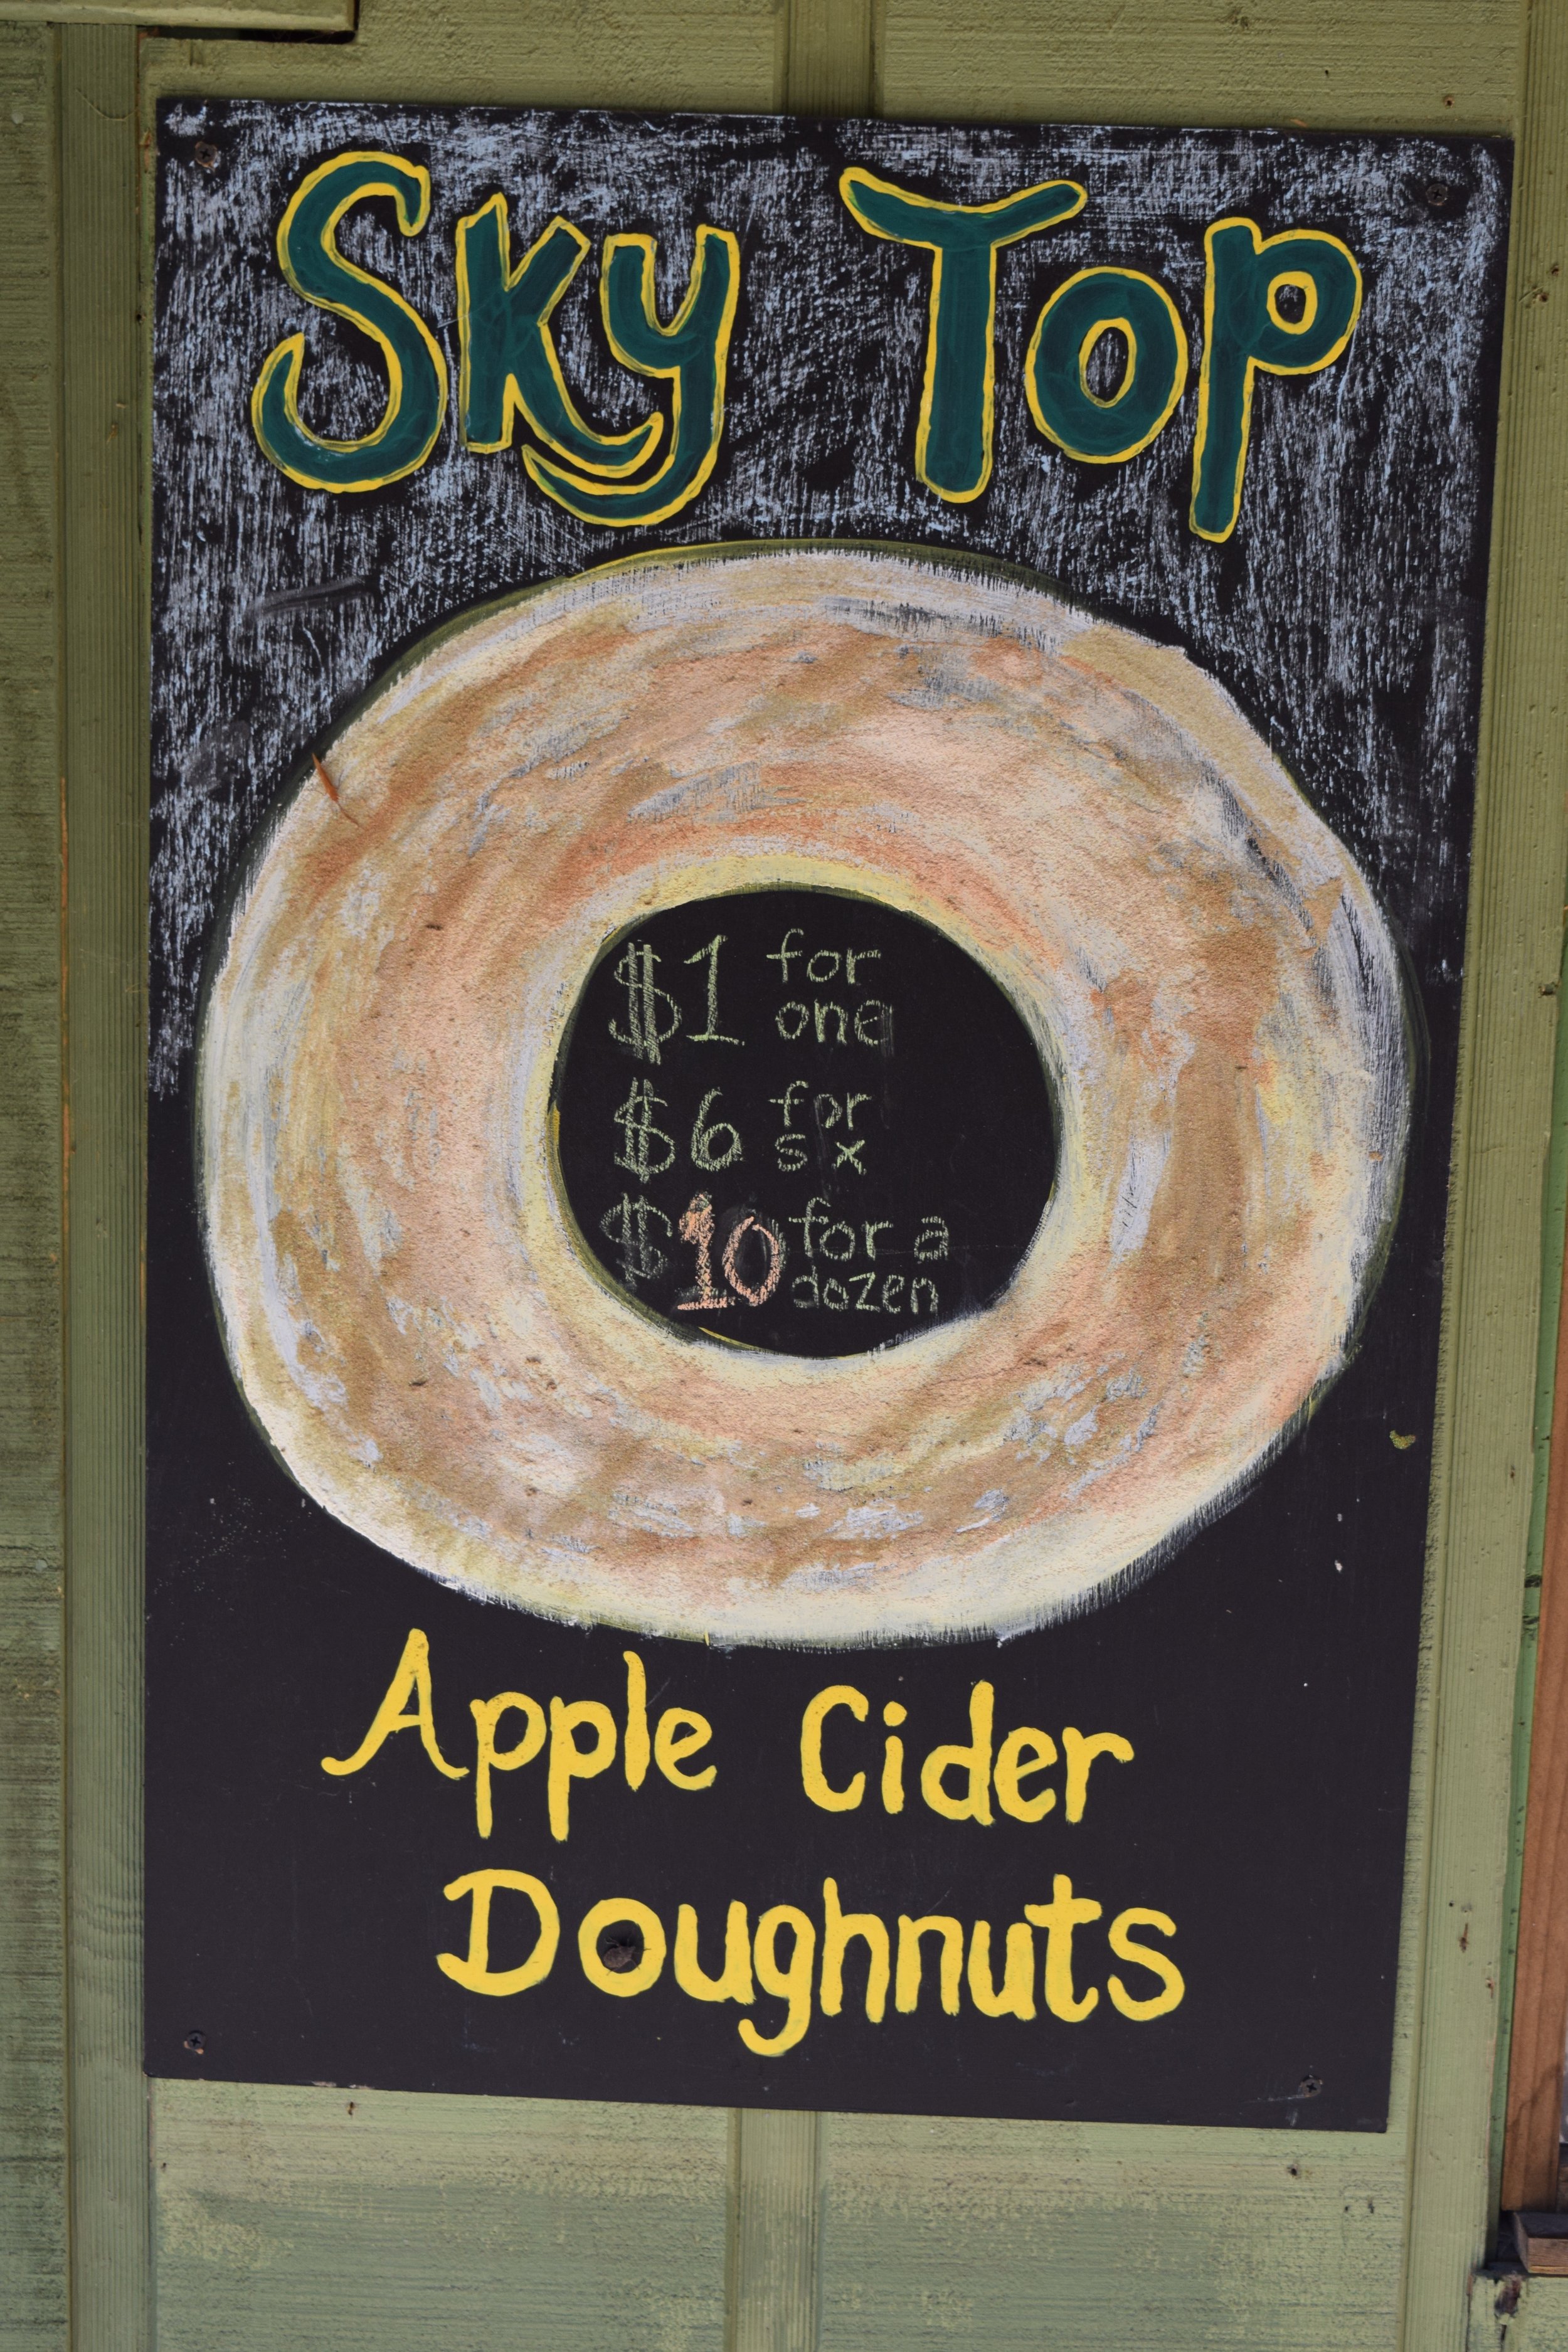 Sky Top
$1 for
one
$6 for
s x
$10 for a
dozen
Apple Cider
Doughnuts